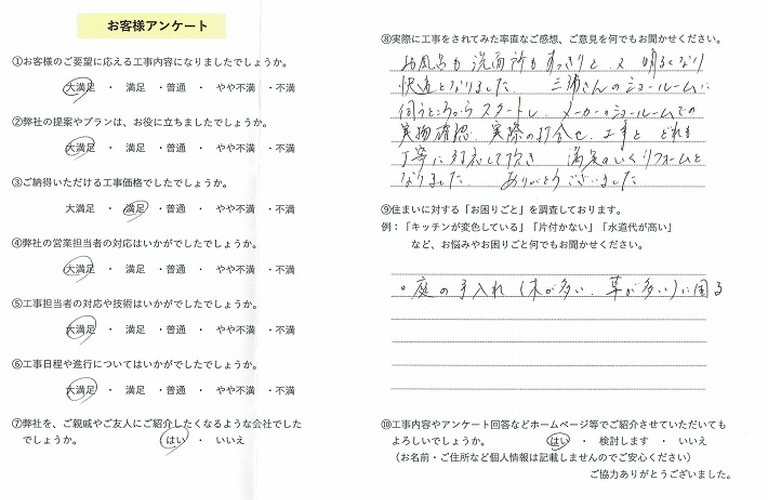 お客様アンケート
①お客様のご要望に応える工事内容になりましたでしょうか。
大満足 ・ 満足 ・普通 ・ やや不満 ・不満
②弊社の提案やプランは、お役に立ちましたでしょうか。
大満足 ・ 満足 ・普通 ・ やや不満 ・不満
③ご納得いただける工事価格でしたでしょうか。
大満足 ・ 満足 ・普通 ・ やや不満 ・不満
④弊社の営業担当者の対応はいかがでしたでしょうか。
大満足 ・ 満足 ・普通 ・ やや不満 ・不満
⑤工事担当者の対応や技術はいかがでしたでしょうか。
大満足 ・ 満足 ・普通 ・ やや不満 ・不満
⑥工事日程や進行についてはいかがでしたでしょうか。
大満足 ・ 満足 ・普通 ・ やや不満 ・不満
⑦弊社を、ご親戚やご友人にご紹介したくなるような会社でした
でしょうか。 はい ・ いいえ
⑧実際に工事をされてみた率直なご感想、ご意見を何でもお聞かせください。
お風呂も 洗面所も すっきりと 又 明るくなり
快適となりました。 三浦さんのショールームに
伺うところからスタートし、メーカーのショールームでの
実物確認、実際の打合せ、工事と どれも
丁寧に対応して頂き 満足のいくリフォームと
なりました。 ありがとうございました
⑨住まいに対する「お困りごと」を調査しております。
例：「キッチンが変色している」「片付かない」「水道代が高い」
など、お悩みやお困りごと何でもお聞かせください。
。庭の手入れ（木が多い、草が多い）に困る
⑩工事内容やアンケート回答などホームページ等でご紹介させていただいても
よろしいでしょうか。 はい ・ 検討します ・ いいえ
（お名前・ご住所など個人情報は記載しませんのでご安心ください）
ご協力ありがとうございました。